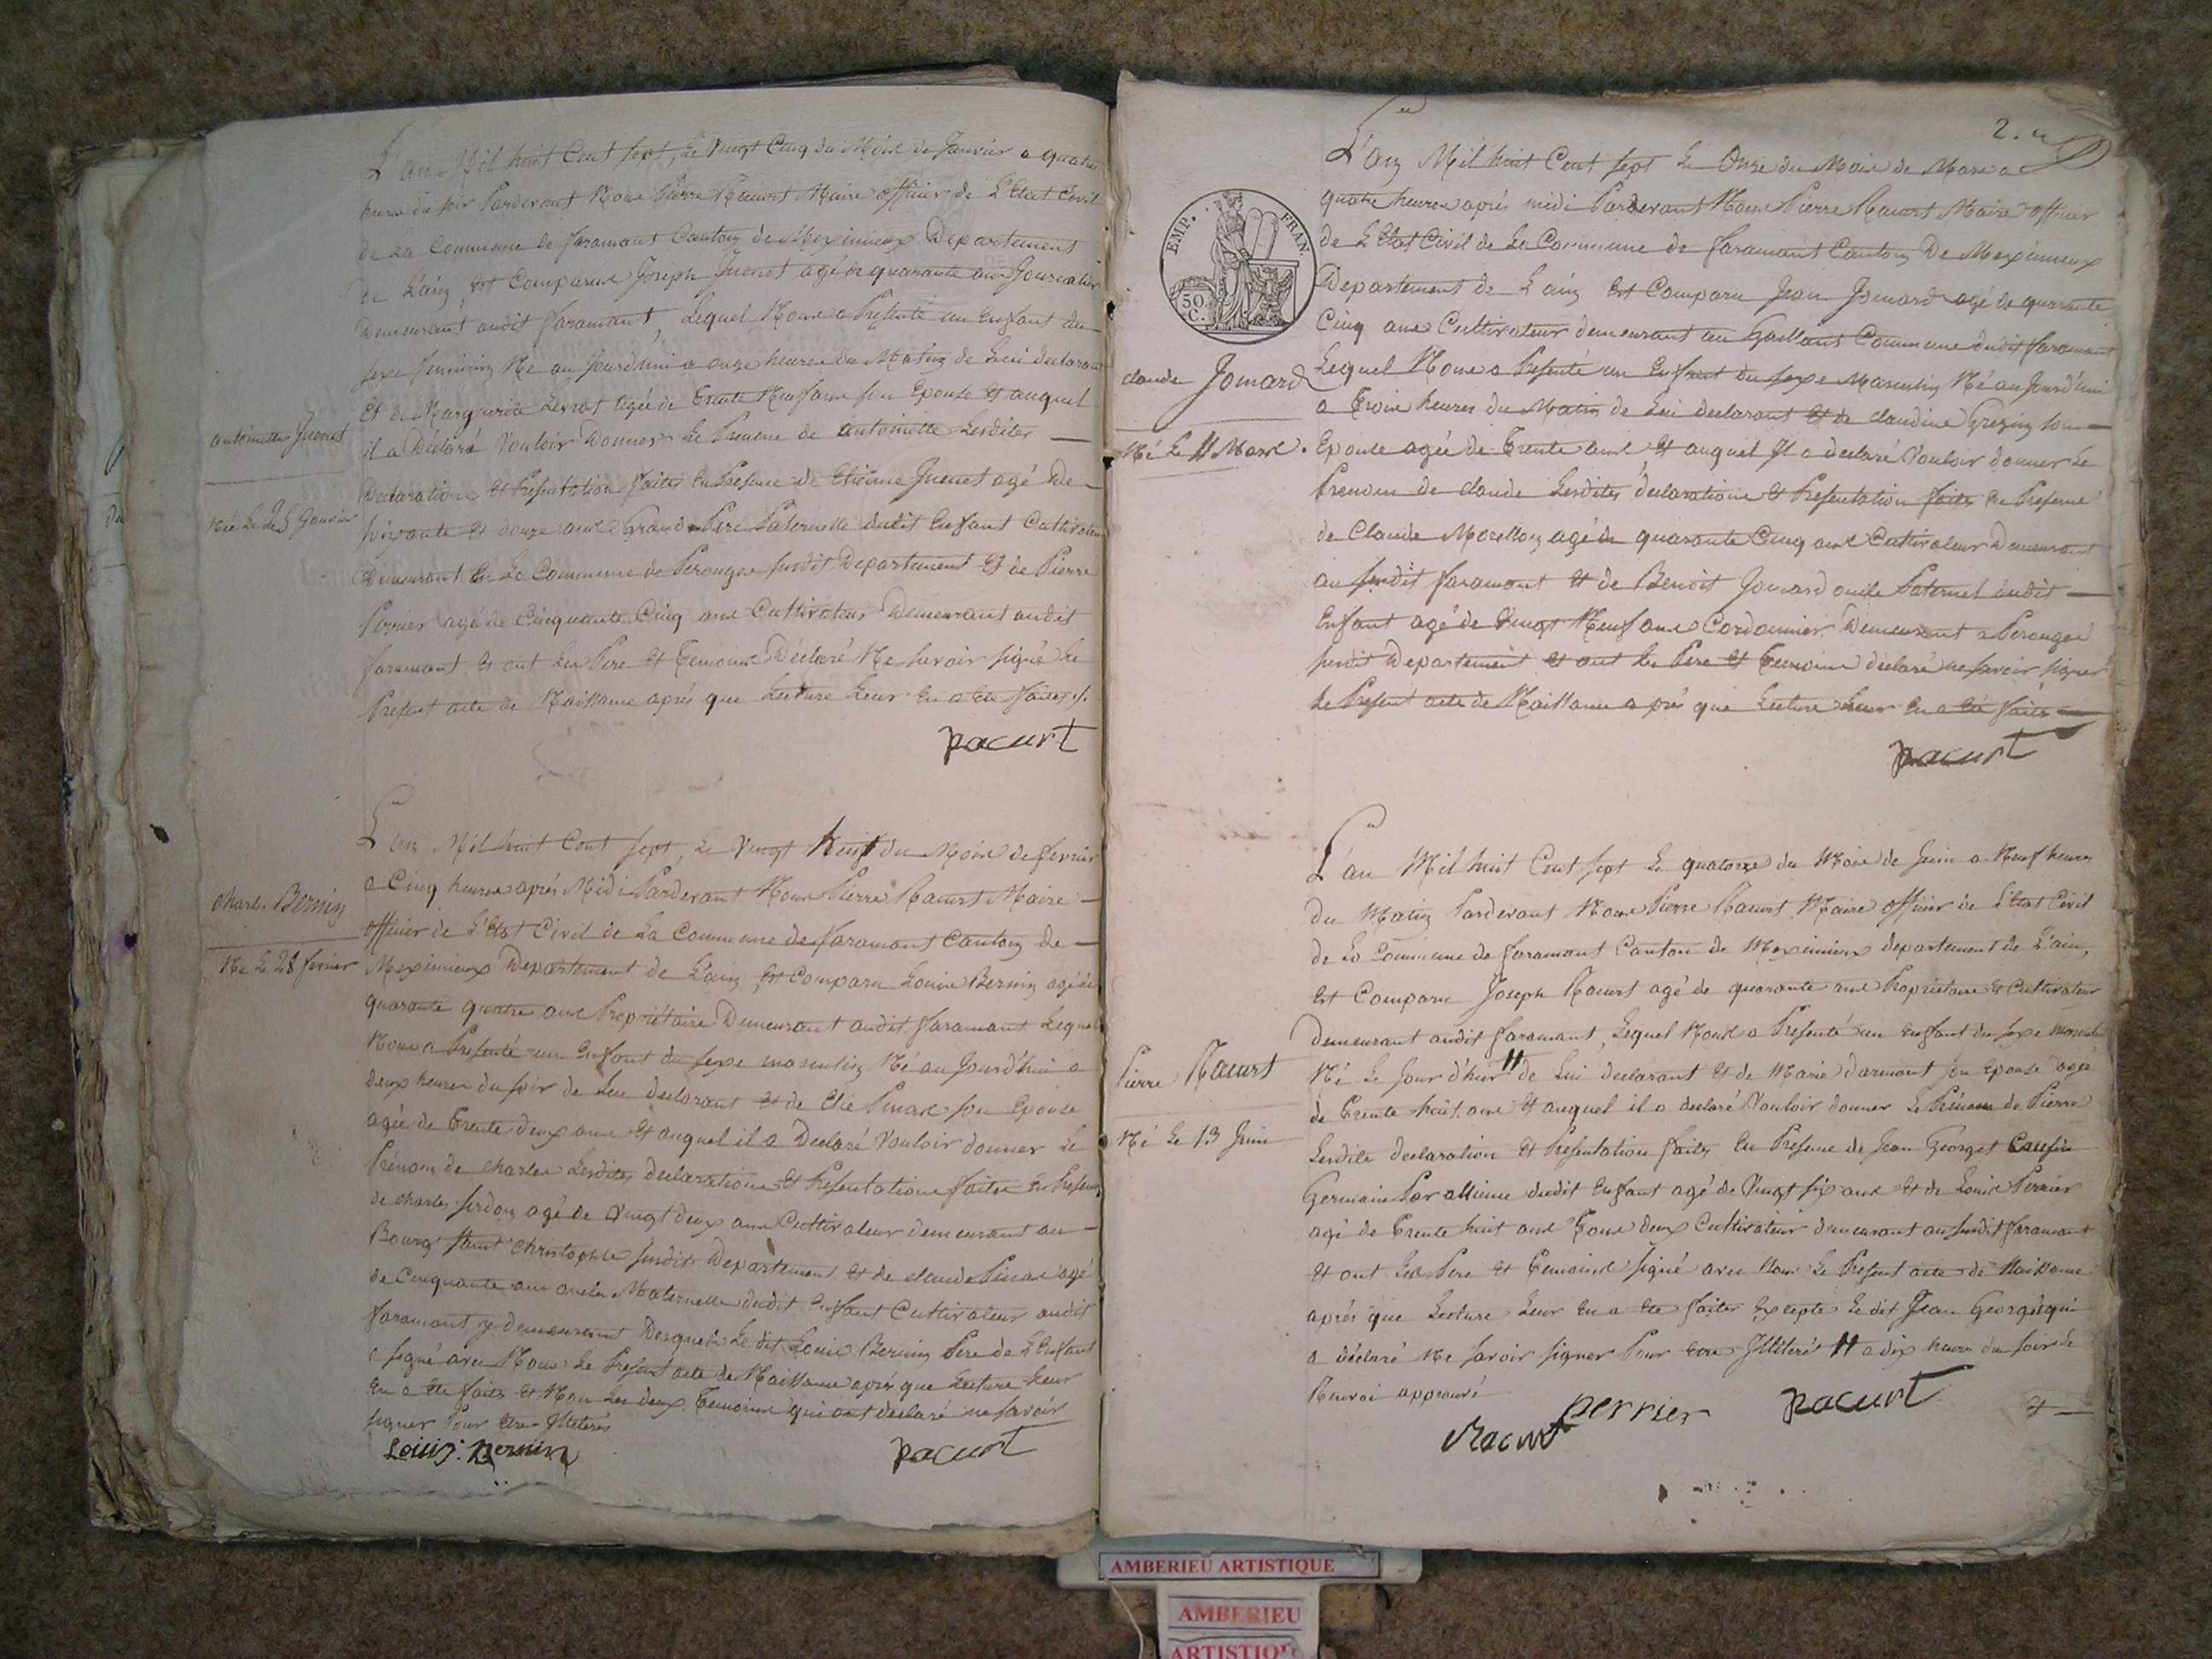 L'an Mil huit Cent sept, Le Vingt Cinq du Mois de Janvier a quatre
heures du soir Pardevant Nous Pierre Racurt Maire officier de L'Etat Civil
de La Commune de faramant Canton de Meximieux Departement
de L'ain, Est Comparu Joseph Juenet agé de quarante ans Journalier
Demeurant audit faramant, Lequel Nous a Presenté un Enfant du
sexe feminin Né au Jourd'hui a onze heures du Matin de Lui declarant
Et de Marguerite Levrat agée de Trente Neuf ans son Epouse Et auquel
il a Déclaré Vouloir Donner Le Prenom de antoinette Lesdites
antoinette Juenet
Née Le 25 Janvier
Declaration Et Presentation faites En Presence de Etienne Juenet agé De
soixante Et douze ans Grand Pere Paternelle dudit Enfant Cultivateur
Demeurant En La Commune de Perouges susdit Departement Et de Pierre
Perrier agé de Cinquante Cinq ans Cultivateur Demeurant audit
faramant Et ont Les Pere Et Temoins Declaré Ne savoir signé Le
Present acte de Naissance après que Lecture Leur En a Eté faites
Racurt
L'an Mil huit Cent sept, Le Vingt huit du Mois de fevrier
a Cinq heures après Midi Pardevant Nous Pierre Racurt Maire
officier de L'Etat Civil de La Commune de faramant Canton de
Charle Bernin
Né Le 28 fevrier
Meximieux Departement de L'ain, Est Comparu Louis Bernin agé de
quarante quatre ans Propriétaire Demeurant audit faramant Lequel
Nous a Presenté un Enfant du sexe masculin Né au Jourd'hui a
deux heures du soir de Lui declarant Et de Elie Pinard son Epouse
agée de Trente deux ans Et auquel il a Declaré Vouloir donner Le
Prénom de charles Lesdites declaration Et Presentation faites En Presence
de charles serdon agé de Vingt deux ans Cultivateur demeurant au
Bourg saint Christophe susdit Departement Et de claude Pinard agé
de Cinquante ans oncle Maternelle dudit Enfant Cultivateur audit
faramant y demeurant Desquels Le dit Louis Bernin Pere de L'Enfant
a signé avec Nous Le Present acte de Naissance après que Lecture Leur
En a Eté faite Et Non Les deux Temoins qui ont declaré ne savoir
signer Pour Etre Illiterés
Louis Bernin Racurt
2.
EMP. FRAN.
50. C.
L'an Mil huit Cent sept Le Onze du Mois de Mars a
quatre heures après midi Pardevant Nous Pierre Racurt Maire officier
de L'Etat Civil de La Commune de faramant Canton De Meximieux
Departement de L'ain Est Comparu Jean Jomard agé de quarante
Cinq ans Cultivateur demeurant au Commune dudit faramant
claude Jomard
Né Le 11 Mars.
Lequel Nous a Presenté un Enfant du sexe Masculin Né au Jourd'hui
a Trois heures du Matin de Lui declarant Et de claudine Grezin son
Epouse agée de Trente ans Et auquel Il a declaré Vouloir donner Le
Prenom de claude Lesdites declarations Et Presentation faites En Presence
de Claude Morellon agé de quarante Cinq ans Cultivateur Demeurant
au susdit faramant Et de Benoit Jomard oncle Paternel dudit
Enfant agé de Vingt Neuf ans Cordonnier Demeurant a Perouges
susdit Departement Et ont Les Pere Et Temoins declaré ne savoir signer
Le Present acte de Naissance après que Lecture Leur En a Eté faites
Racurt
L'an Mil huit Cent sept Le quatorze du Mois de Juin a Neuf heures
du Matin Pardevant Nous Pierre Racurt Maire officier de L'Etat Civil
de La Commune de faramant Canton de Meximieux departement de L'ain,
Est Comparu Joseph Racurt agé de quarante ans Propriétaire Et Cultivateur
Demeurant audit faramant, Lequel Nous a Presenté un Enfant du sexe masculin
Pierre Racurt
Né Le 13 Juin
Né Le Jour d'hier // de Lui declarant Et de Marie Darmont son Epouse agée
de Trente huit ans Et auquel il a declaré Vouloir donner Le Prénom de Pierre
Lesdites declaration Et Presentation faites En Presence de Jean Georget Cousin
Germain Par alliance dudit Enfant agé de Vingt six ans Et de Louis Perrier
agé de Trente huit ans Tous deux Cultivateur demeurant au susdit faramant
Et ont Les Pere Et Temoins signé avec Nous Le Present acte de Naissance
après que Lecture Leur En a Eté faites Excepté Le dit Jean Georget qui
a déclaré Ne savoir signer Pour Etre Illiteré // a dix heures du soir Le
Renvoi approuvé
Racurt Perrier Racurt
AMBERIEU ARTISTIQUE
AMBERIEU
ARTISTIQUE